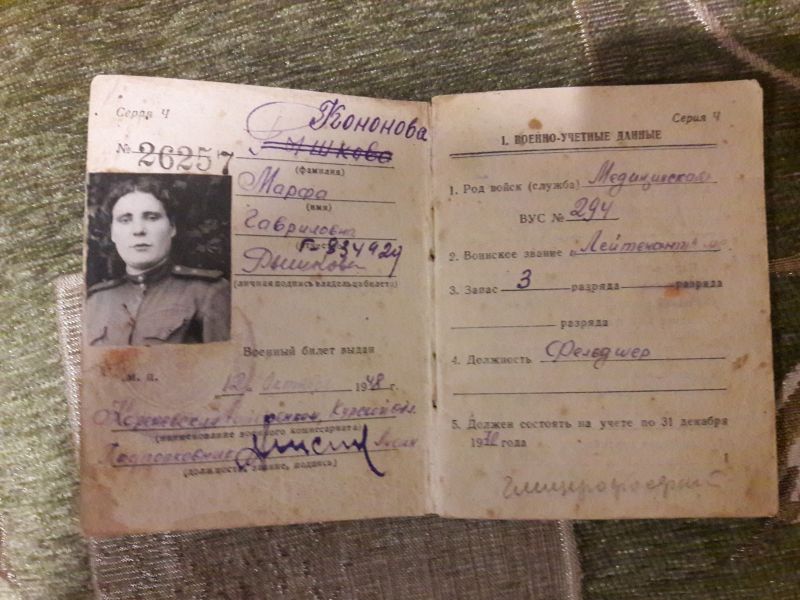 Серия Ч
№ 26257
Кононова
Рышкова
(фамилия)
Марфа
(имя)
Гавриловна
Г 834924
Рышкова
(личная подпись владельца билета)
Военный билет выдан
М. П.
12 Октября 1948 г.
Курской обл.
(наименование военного комиссариата)
Подполковник
(должность, звание, подпись)
Серия Ч
1. ВОЕННО-УЧЕТНЫЕ ДАННЫЕ
1. Род войск (служба) Медицинская
ВУС № 294
2. Воинское звание „Лейтенант"
3. Запас 3 разряда разряда
разряда
4. Должность Фельдшер
5. Должен состоять на учете по 31 декабря
19 года
1